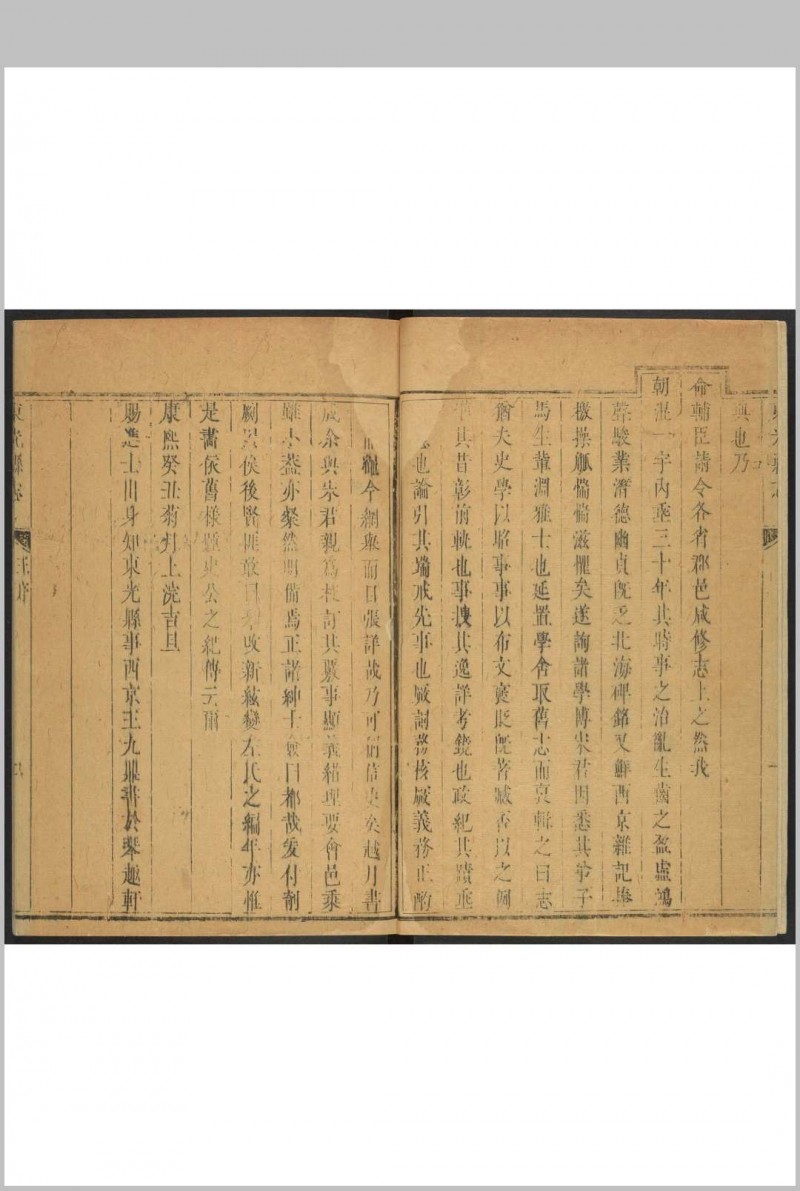 典也乃
命輔臣請令各省郡邑咸修志上之然我
朝混一宇內垂三十年其時事之治亂生齒之盈虛鴻
駿業潛德幽貞旣乏北海碑銘又鮮西京雜記
操觚惴惴滋懼矣遂詢諸學博宋君因悉其弟子
馬生輩淵雅士也延置學舍取舊志而裒輯之曰志
猶夫史學以昭事事以布文寔旣旣著臧否以之
其昔彰前軌也事搜其逸詳考鏡也政紀其蹟垂
也論引其端戒先事也厥詞務核厥義務正酌
今綱舉而目張詳哉乃可稱信史矣越月書
成余與宋君親爲校訂其覈事顯義緒理要會邑乘
雖小葢亦粲然明備焉正諸紳士僉曰都哉爰付剞
劂異俟後賢匪敢曰改新絃變左氏之編年亦惟
是書依舊樣史公之紀傳云爾
康熙癸丑菊月上浣吉旦
賜進士出身知東光縣事西京王九鼎書於琴趣軒
東光縣志
王序